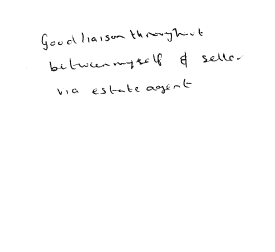 Good liaison throughout
between myself & seller
via estate agent